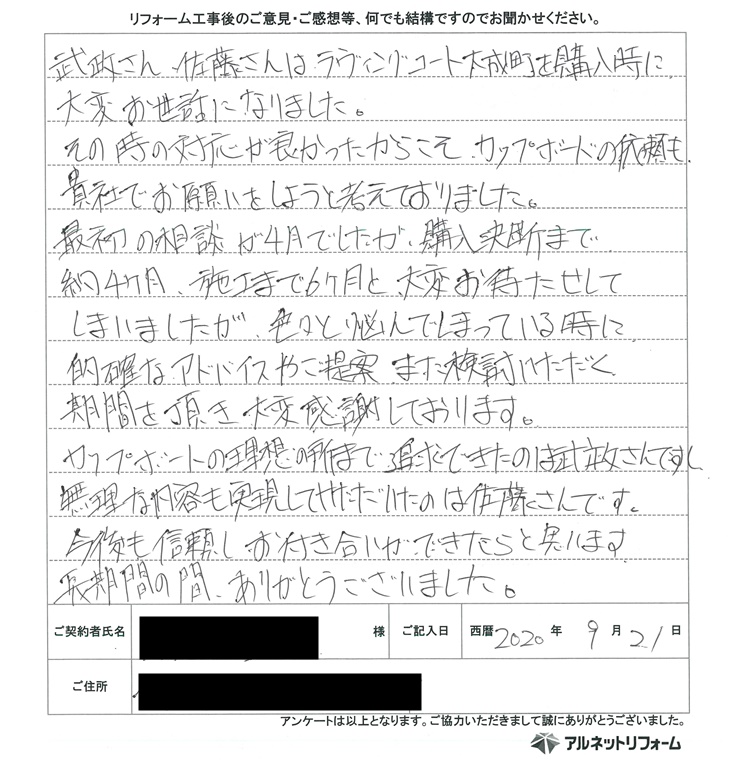 リフォーム工事後のご意見・ご感想等、何でも結構ですのでお聞かせください。
武政さん、佐藤さんは、ラヴィングコート大成町を購入時に、
大変お世話になりました。
その時の対応が良かったからこそ、カップボードの依頼も、
貴社でお願いをしようと考えておりました。
最初の相談が4月でしたが、購入決断まで
約4ヶ月、施工まで6ヶ月と、大変お待たせして
しまいましたが、色々と悩んでしまっている時に、
的確なアドバイスやご提案、また検討いただく
期間を頂き、大変感謝しております。
カップボートの理想の所まで追求できたのは武政さんですし、
無理な内容も実現してただいたのは佐藤さんです。
今後も信頼しお付き合いができたらと思います
長期間の間、ありがとうございました。
ご契約者氏名 様 ご記入日 西暦 2020 年 9 月 21 日
ご住所
アンケートは以上となります。ご協力いただきまして誠にありがとうございました。
アルネットリフォーム